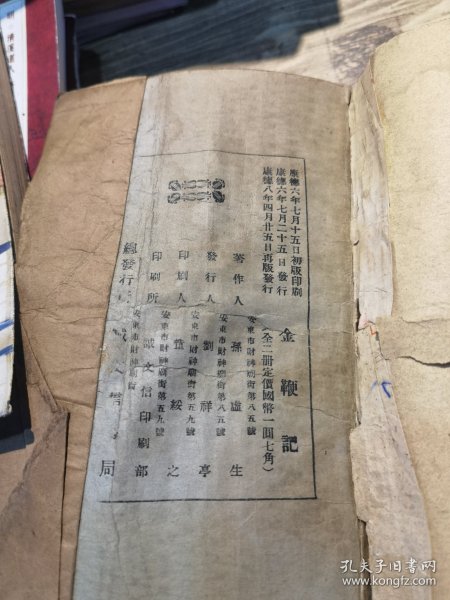 康德六年七月十五日初版印刷
康德六年七月二十五日發行
康德八年四月廿五日再版發行
金鞭記
(全二冊定價國幣一圓七角)
著作人 孫虛生
安東市財神廟街第八五號
發行人 劉祥亭
安東市財神廟街第八五號
印刷人 綏之
安東市財神廟街第五九號
印刷所 誠文信印刷部
安東市財神廟街第五九號
總發行 誠文 局
安東市財神廟街
孔夫子旧书网
www.kongfz.com